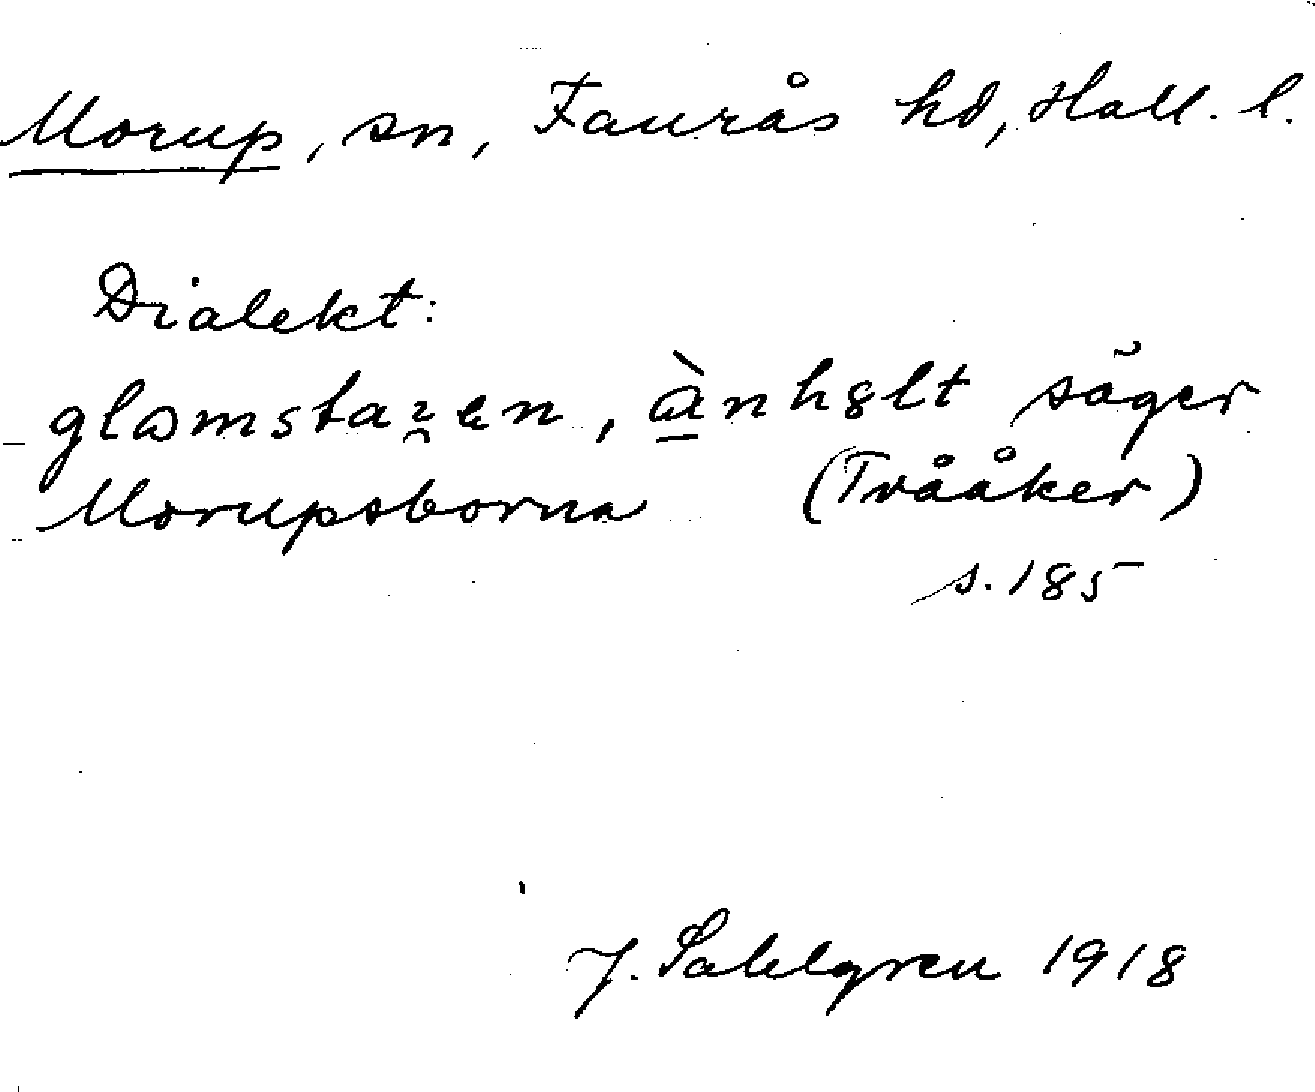 Morup, sn, Faurås hd, Hall. l.
Dialekt:
säger
Morupsborna (Tvååker)
s. 185
J. Sahlgren 1918